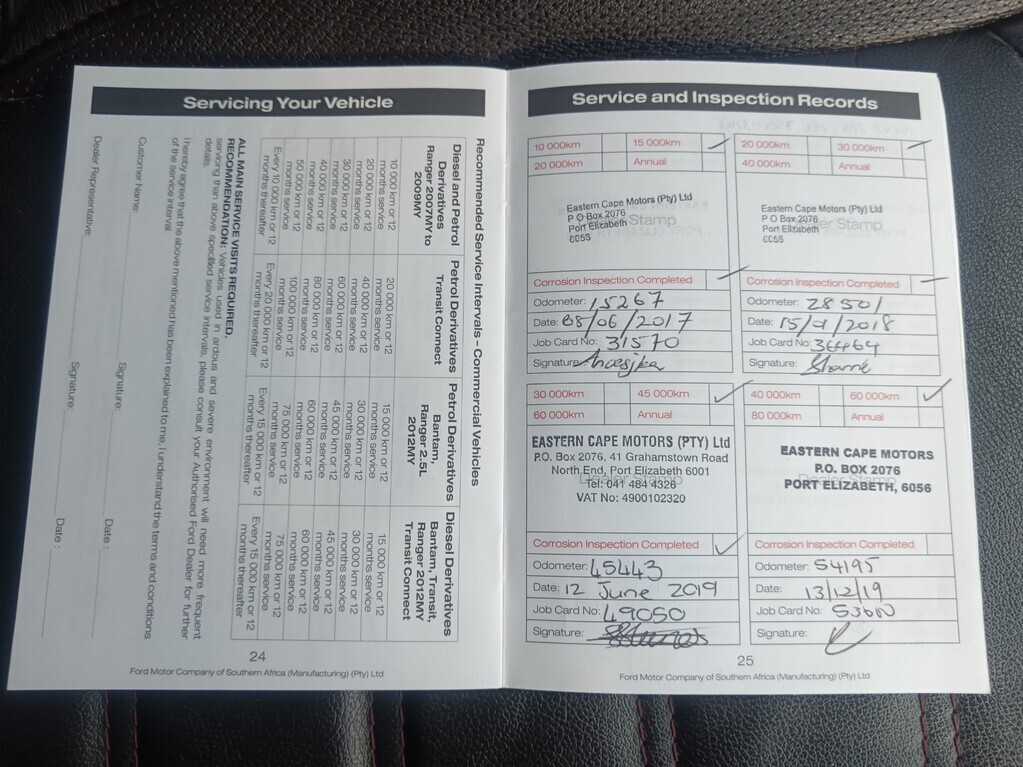 Servicing Your Vehicle
Recommended Service Intervals – Commercial Vehicles
Diesel and Petrol
Derivatives
Ranger 2007MY to
2009MY
10 000 km or 12
months service
20 000 km or 12
months service
30 000 km or 12
months service
40 000 km or 12
months service
50 000 km or 12
months service
Every 10 000 km or 12
months thereafter
Petrol Derivatives
Transit Connect
20 000 km or 12
months service
40 000 km or 12
months service
60 000 km or 12
months service
80 000 km or 12
months service
100 000 km or 12
months service
Every 20 000 km or 12
months thereafter
Petrol Derivatives
Bantam,
Ranger 2.5L
2012MY
15 000 km or 12
months service
30 000 km or 12
months service
45 000 km or 12
months service
60 000 km or 12
months service
75 000 km or 12
months service
Every 15 000 km or 12
months thereafter
Diesel Derivatives
Bantam, Transit,
Ranger 2012MY
Transit Connect
15 000 km or 12
months service
30 000 km or 12
months service
45 000 km or 12
months service
60 000 km or 12
months service
75 000 km or 12
months service
Every 15 000 km or 12
months thereafter
ALL MAIN SERVICE VISITS REQUIRED.
RECOMMENDATION: Vehicles used in ardous and severe environment will need more frequent
servicing than above specified service intervals, please consult your Authorised Ford Dealer for further
details.
I hereby agree that the above mentioned has been explained to me, I understand the terms and conditions
of the service interval.
Customer Name: Signature: Date :
Dealer Representative: Signature: Date :
24
Ford Motor Company of Southern Africa (Manufacturing) (Pty) Ltd
Service and Inspection Records
10 000km 15 000km
20 000km Annual
Eastern Cape Motors (Pty) Ltd
P O Box 2076
Port Elizabeth
6056
Stamp
Corrosion Inspection Completed
Odometer: 15267
Date: 08/06/2017
Job Card No: 31570
Signature:
20 000km 30 000km
40 000km Annual
Eastern Cape Motors (Pty) Ltd
P O Box 2076
Port Elizabeth
6056
Dealer Stamp
Corrosion Inspection Completed
Odometer: 28501
Date: 15/01/2018
Job Card No: 36464
Signature:
30 000km 45 000km
60 000km Annual
EASTERN CAPE MOTORS (PTY) Ltd
P.O. Box 2076, 41 Grahamstown Road
North End, Port Elizabeth 6001
Tel: 041 484 4326
VAT No: 4900102320
Corrosion Inspection Completed
Odometer: 45443
Date: 12 June 2019
Job Card No: 49050
Signature:
40 000km 60 000km
80 000km Annual
EASTERN CAPE MOTORS
P.O. BOX 2076
PORT ELIZABETH, 6056
Dealer Stamp
Corrosion Inspection Completed
Odometer: 54195
Date: 13/12/19
Job Card No:
Signature:
25
Ford Motor Company of Southern Africa (Manufacturing) (Pty) Ltd